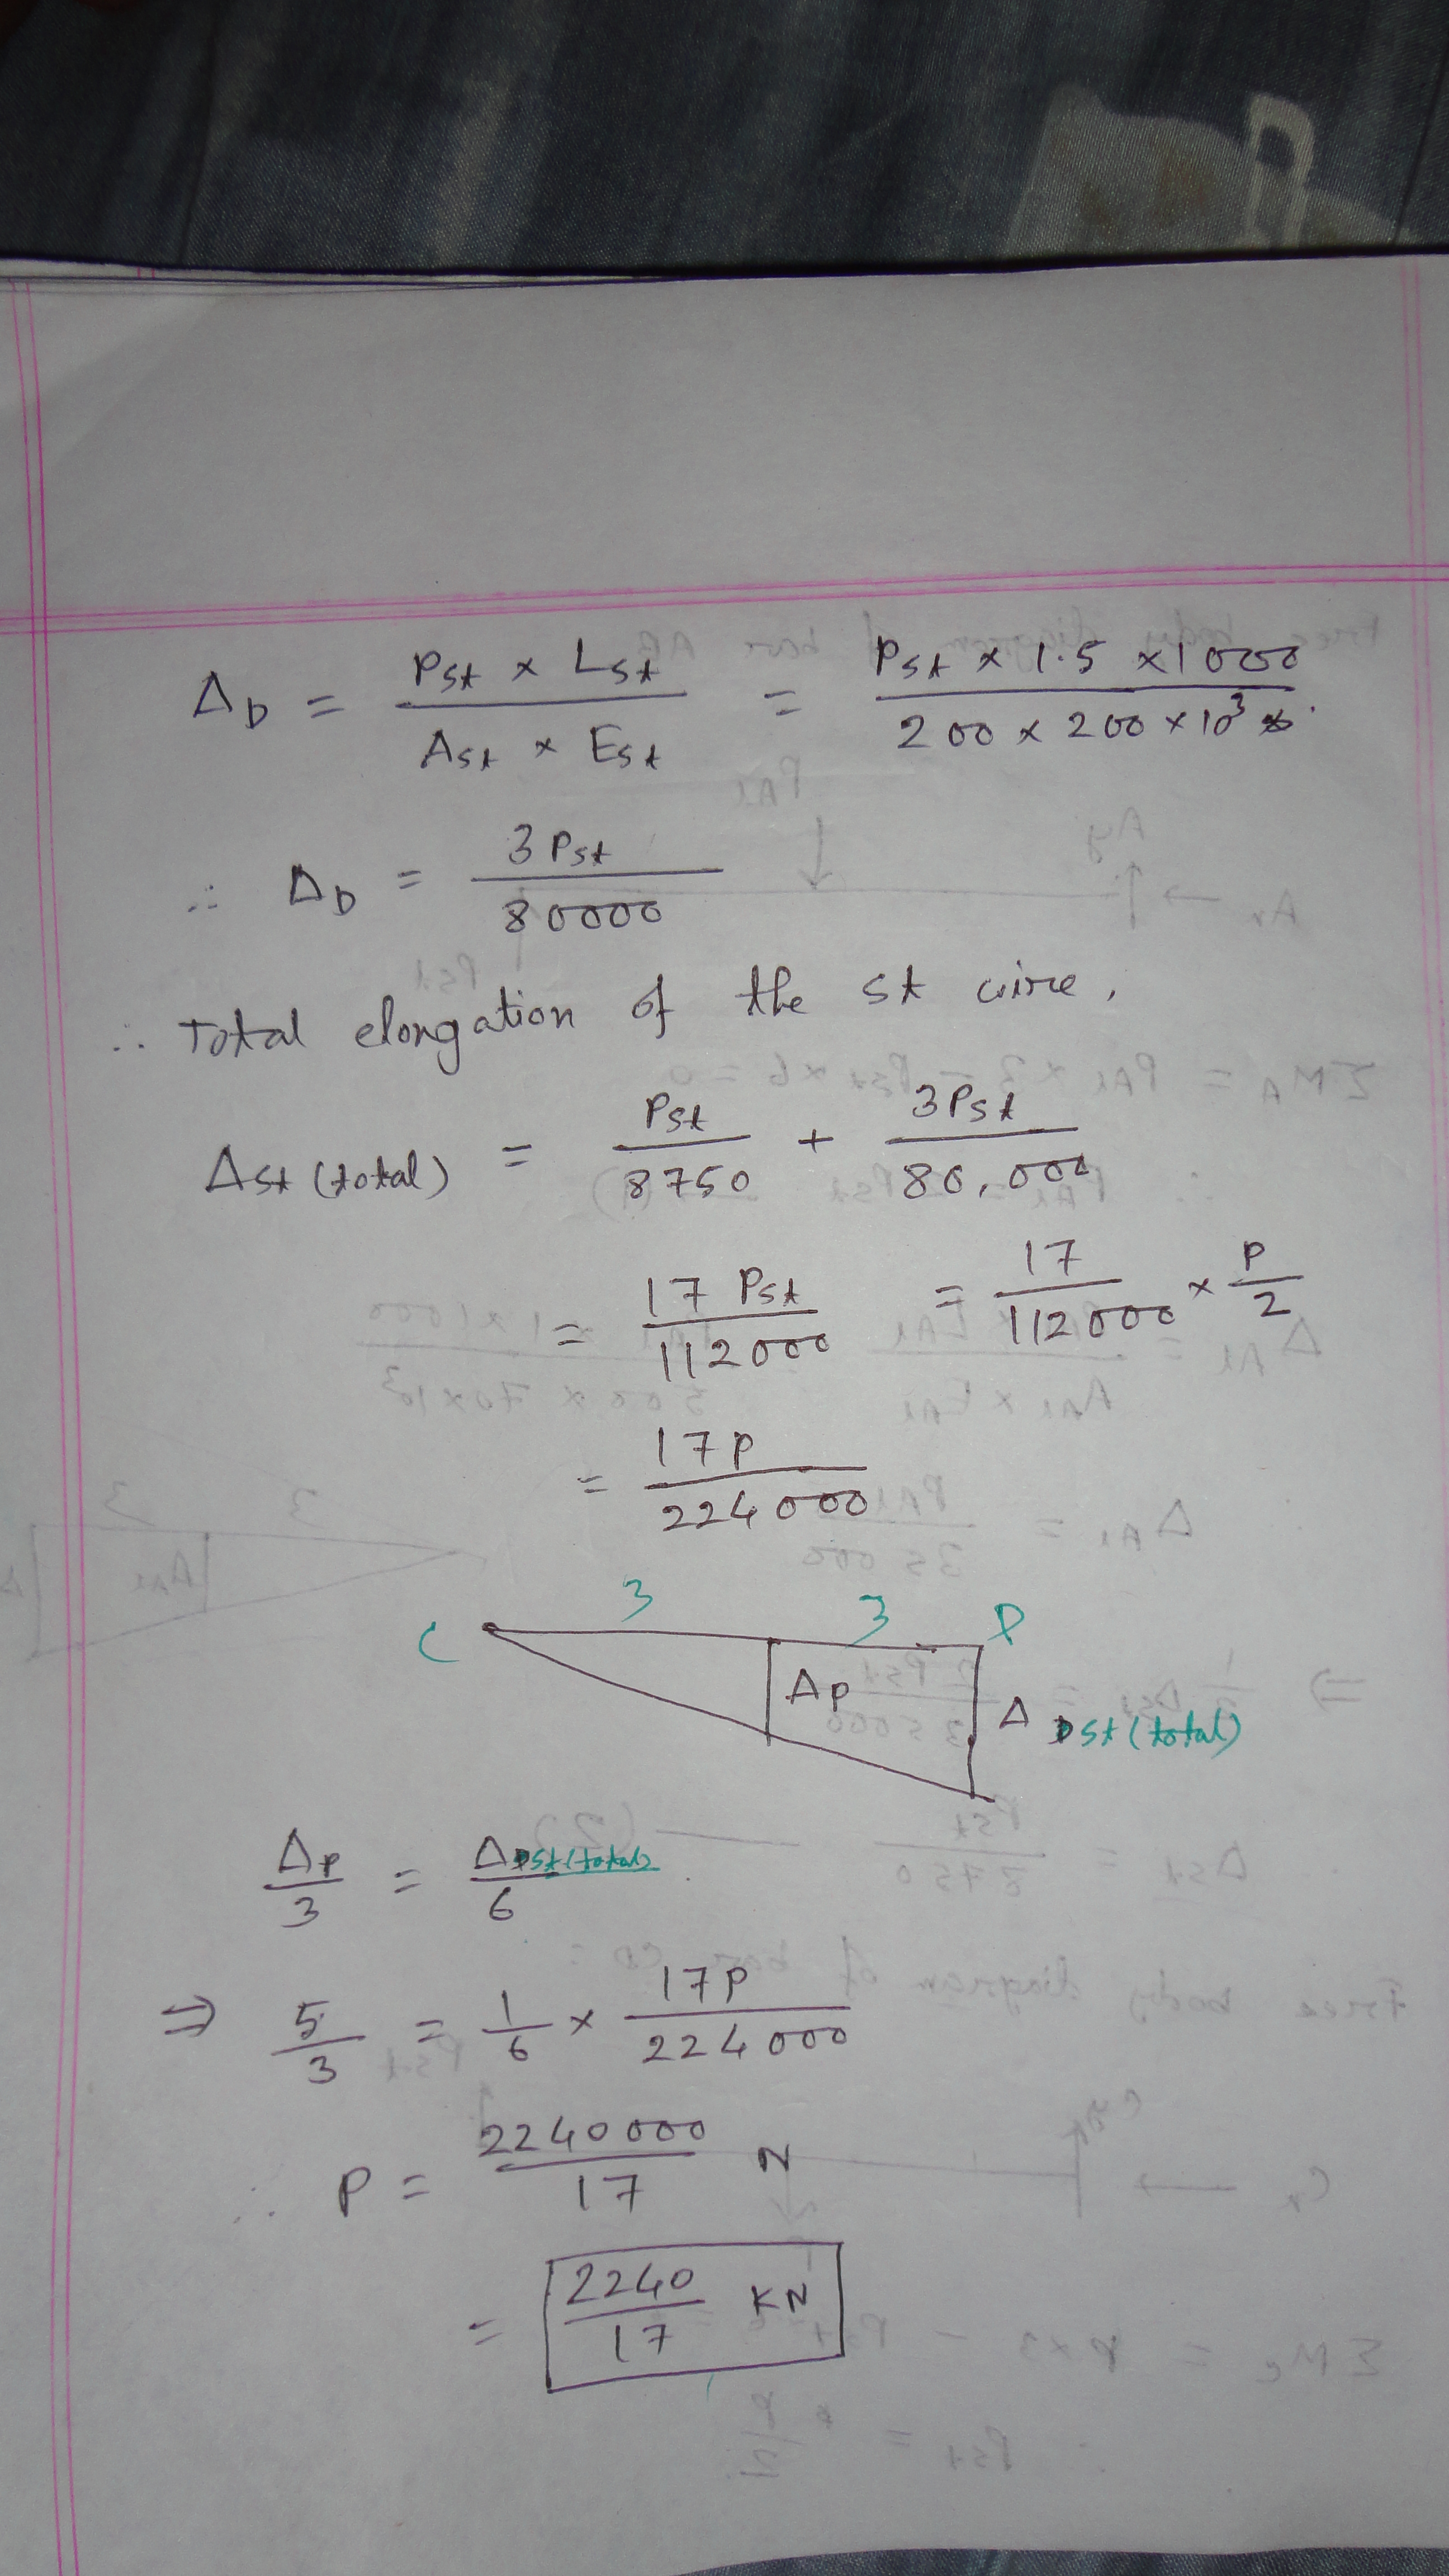 Δ_D = (P_St × L_St) / (A_St × E_St) = (P_St × 1.5 × 1000) / (200 × 200 × 10^3)
∴ Δ_D = 3 P_St / 80000
∴ Total elongation of the St wire,
Δ_St (total) = P_St / 8750 + 3P_St / 80,000
= 17 P_St / 112000 = 17 / 112000 × P / 2
= 17P / 224000
3
C 3 P
Δ_P Δ_St (total)
Δ_P / 3 = Δ_St (total) / 6
⇒ 5 / 3 = 1 / 6 × 17P / 224000
∴ P = 2240000 / 17 N
= 2240 / 17 KN